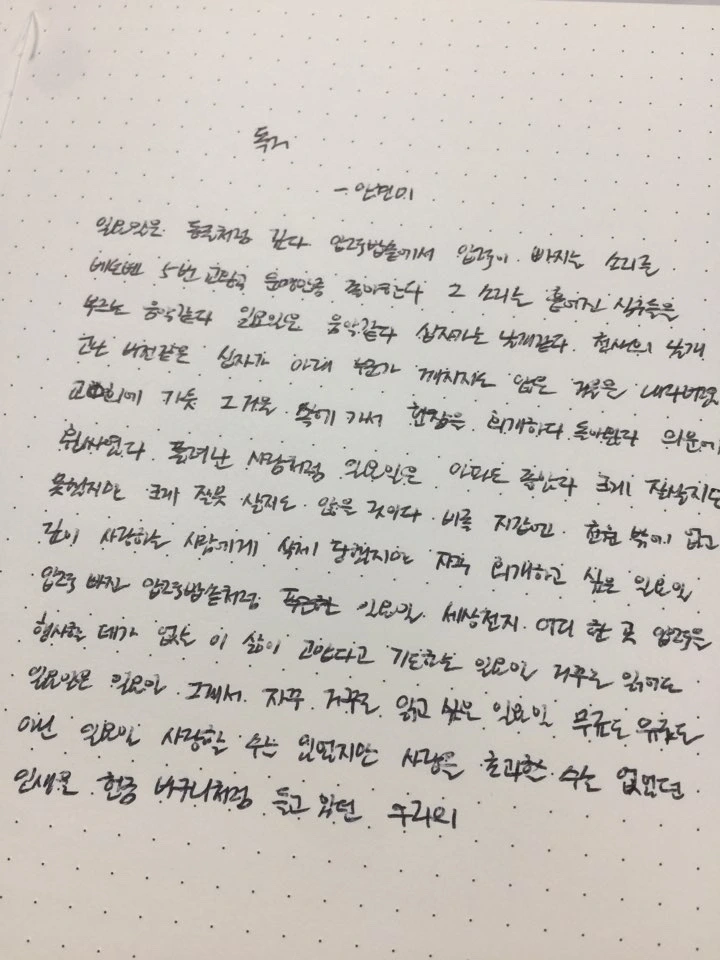 독거
- 안현미
일요일은 동굴처럼 깊다 압력밥솥에서 압력이 빠지는 소리를
베토벤 5번 교향곡 운명만큼 좋아한다 그 소리는 흩어진 식구들을
부르는 음악같다 일요일은 음악같다 십자가는 날개같다. 천사의 날개
고난 버전같은 십자가 아래 누군가 깨지지도 않은 거울을 내다버렸
교회에 가듯 그 거울 속에 가서 한참을 회개하다 돌아왔다 의문에
휩싸였다 풀려난 사람처럼 일요일은 아파도 좋았다 크게 잘살지도
못했지만 크게 잘못 살지도 않은 것이다. 비록 지갑엔 천원 밖에 없고
깊이 사랑하는 사람에게 삭제 당했지만 자꾸 회개하고 싶은 일요일
압력 빠진 압력밥솥처럼 푹큰한 일요일 세상천지 어디 한 곳 압력을
행사할 데가 없는 이 삶이 고맙다고 기도하는 일요일 거꾸로 읽어도
일요일은 일요일 그래서 자꾸 거꾸로 읽고 싶은 일요일 무규도 유규도
아닌 일요일 사랑할 수는 있었지만 사랑을 초과할 수는 없었던
인생을 헌금 바구니처럼 들고 있던